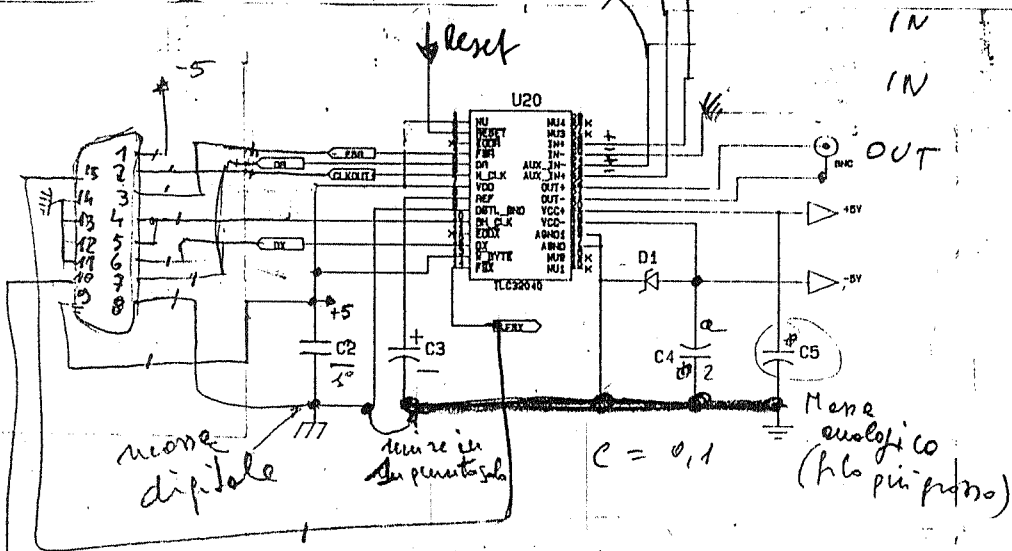 IN
Reset
-5
IN
U20
NU
RESET
EODR
FSR
DR
M_CLK
VDD
REF
DGTL_GND
SH_CLK
EODX
DX
W_BYTE
FSX
NU4
NU3
IN+
IN-
AUX_IN-
AUX_IN+
OUT+
OUT-
VCC+
VCC-
AGND1
AGND
NU2
NU1
TLC32040
FSR
DR
CLKOUT
DX
FSX
1
2
3
4
5
6
7
8
15
14
13
12
11
10
9
OUT
BNC
+5V
-5V
D1
+5
C2
C3
C4
2
C5
massa
digitale
unire in
un punto solo
C = 0,1
Massa
analogico
(filo più grosso)